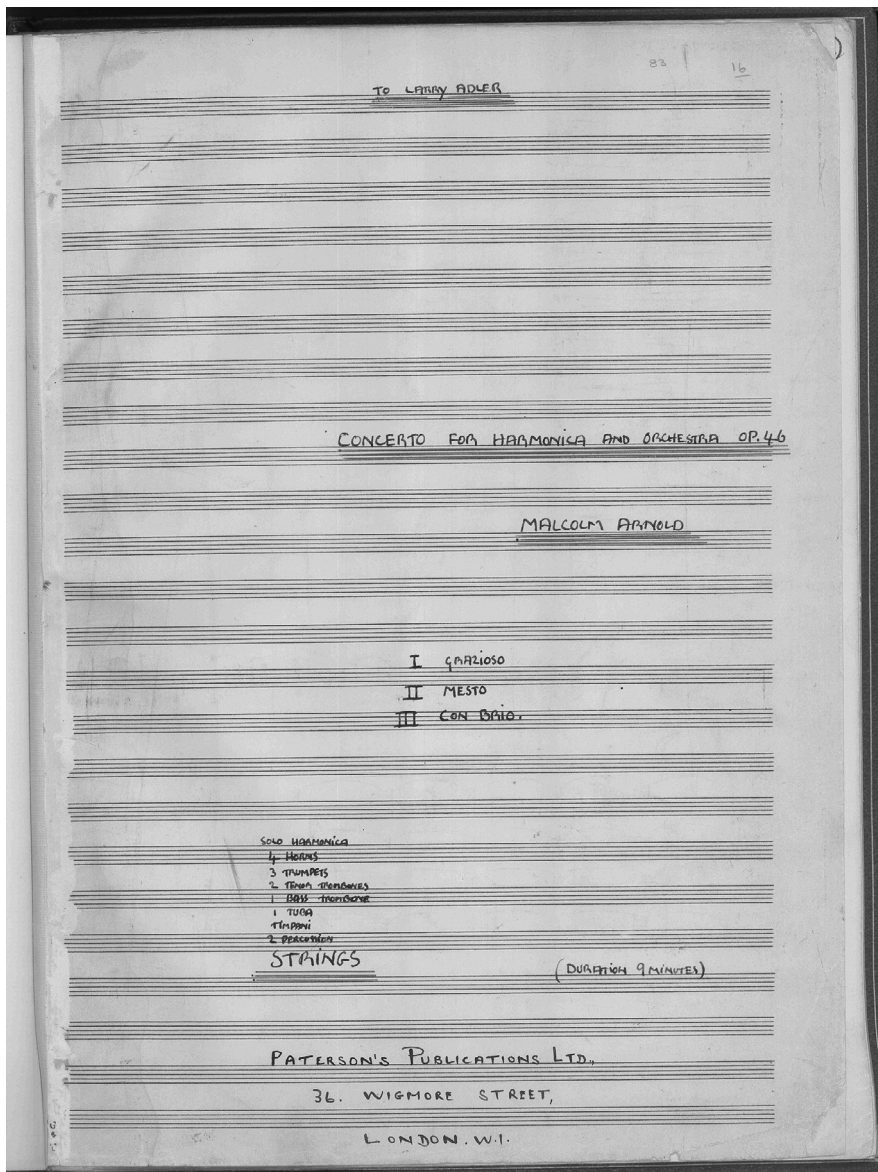 83 16
TO LARRY ADLER
CONCERTO FOR HARMONICA AND ORCHESTRA OP.46
MALCOLM ARNOLD
I GRAZIOSO
II MESTO
III CON BRIO.
SOLO HARMONICA
4 HORNS
3 TRUMPETS
2 TENOR TROMBONES
1 BASS TROMBONE
1 TUBA
TIMPANI
2 PERCUSSION
STRINGS
(DURATION 9 MINUTES)
PATERSON'S PUBLICATIONS LTD.,
36. WIGMORE STREET,
LONDON. W.1.